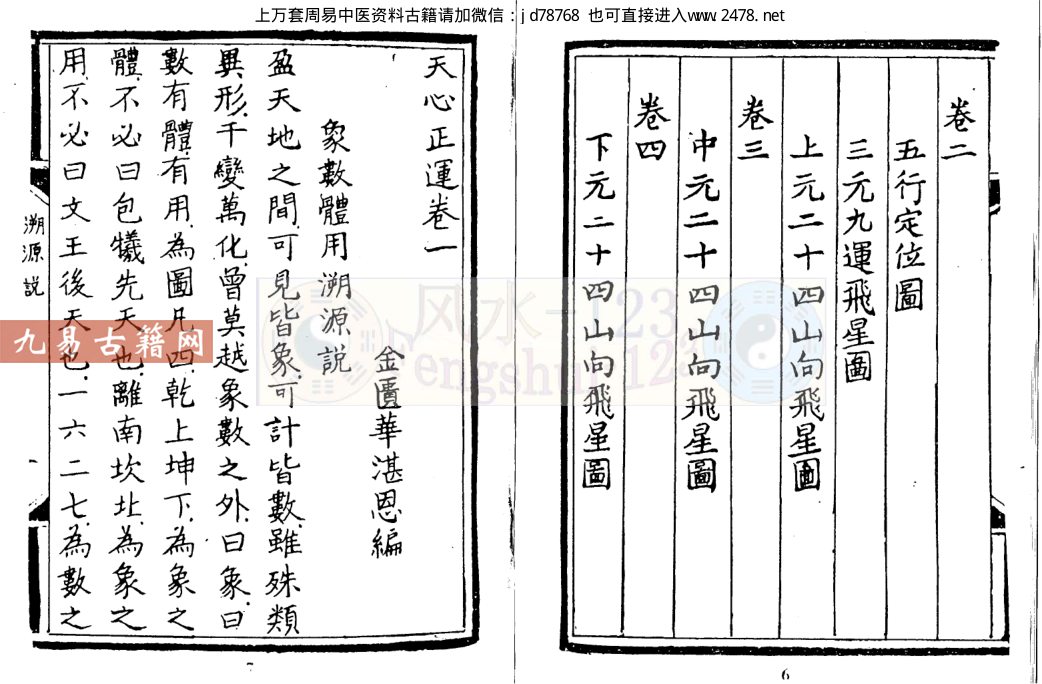 上万套周易中医资料古籍请加微信：jd78768 也可直接进入www.2478.net
卷二
五行定位圖
三元九運飛星圖
上元二十四山向飛星圖
卷三
中元二十四山向飛星圖
卷四
下元二十四山向飛星圖
6
天心正運卷一
象數體用溯源説
金匱華湛恩編
盈天地之間可見皆象可計皆數雖殊類
異形千變萬化曾莫越象數之外曰象曰
數有體有用為圖凡四乾上坤下為象之
體不必曰包犧先天也離南坎北為象之
用不必曰文王後天也一六二七為數之
溯源説
一
7
风水-123
fengshui-123
九易古籍网